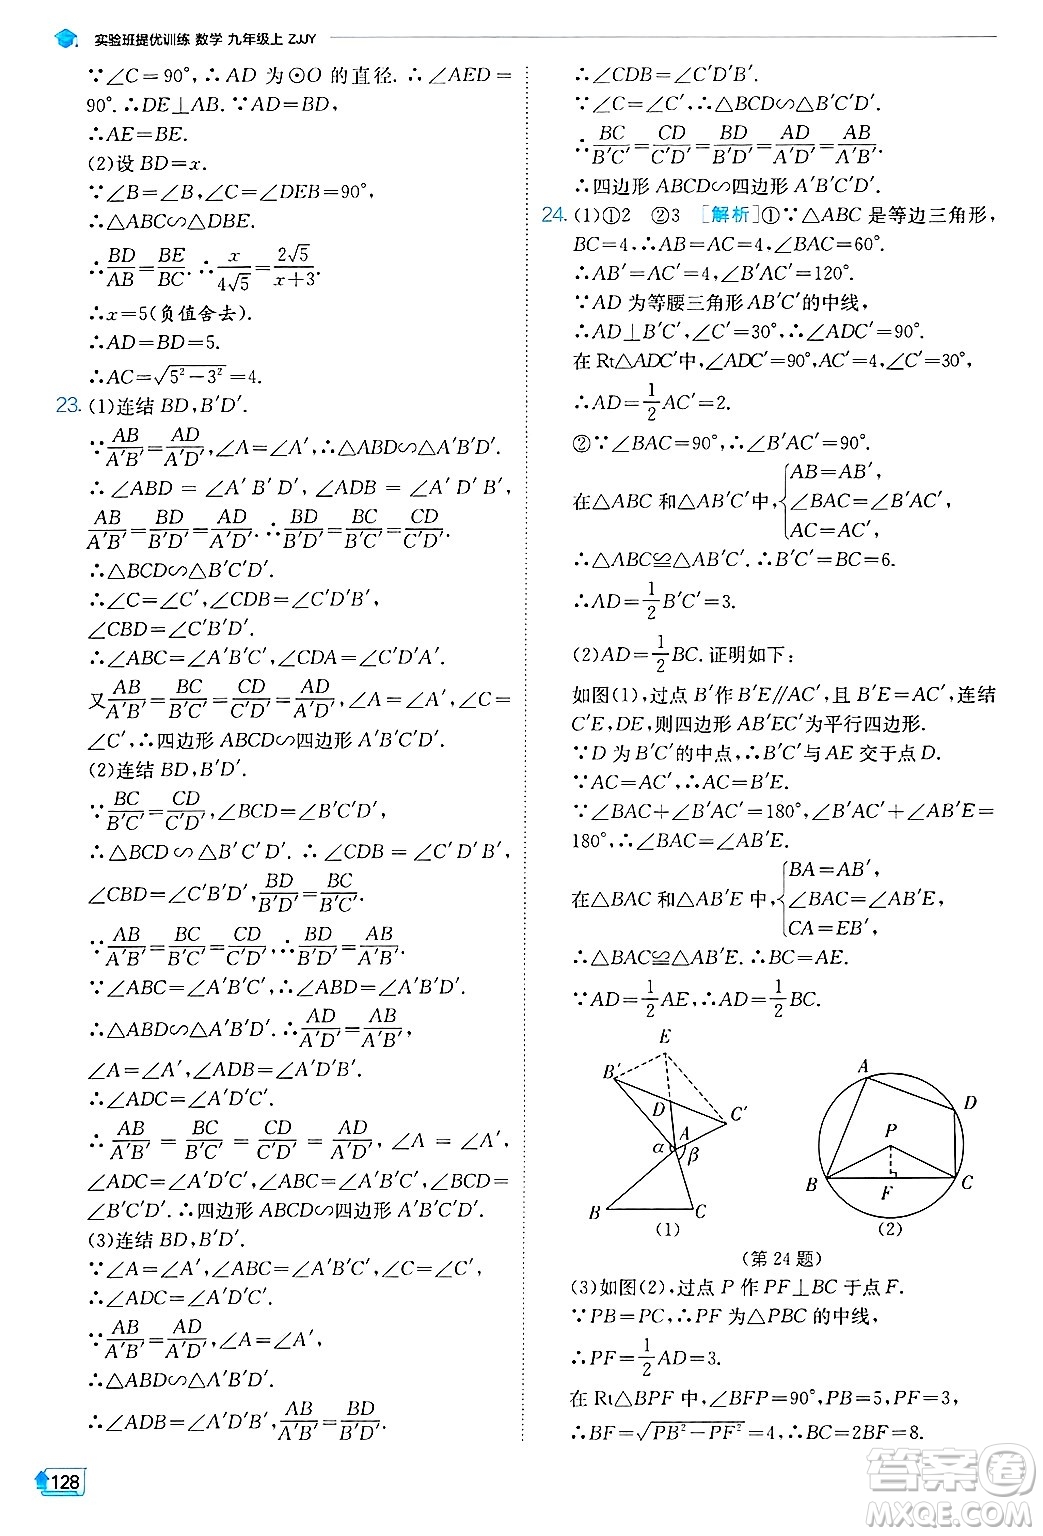 实验班提优训练 数学 九年级上 ZJJY
∵∠C=90°,∴AD 为⊙O 的直径.∴∠AED=
90°.∴DE⊥AB.∵AD=BD,
∴AE=BE.
(2)设 BD=x.
∵∠B=∠B,∠C=∠DEB=90°,
∴△ABC∽△DBE.
∴BD/AB=BE/BC.∴x/4√5=2√5/x+3.
∴x=5(负值舍去).
∴AD=BD=5.
∴AC=√5²-3²=4.
23. (1)连结 BD,B′D′.
∵AB/A′B′=AD/A′D′,∠A=∠A′,∴△ABD∽△A′B′D′.
∴∠ABD=∠A′B′D′,∠ADB=∠A′D′B′,
AB/A′B′=BD/B′D′=AD/A′D′.∴BD/B′D′=BC/B′C′=CD/C′D′.
∴△BCD∽△B′C′D′.
∴∠C=∠C′,∠CDB=∠C′D′B′,
∠CBD=∠C′B′D′.
∴∠ABC=∠A′B′C′,∠CDA=∠C′D′A′.
又AB/A′B′=BC/B′C′=CD/C′D′=AD/A′D′,∠A=∠A′,∠C=
∠C′,∴四边形 ABCD∽四边形 A′B′C′D′.
(2)连结 BD,B′D′.
∵BC/B′C′=CD/C′D′,∠BCD=∠B′C′D′,
∴△BCD∽△B′C′D′.∴∠CDB=∠C′D′B′,
∠CBD=∠C′B′D′,BD/B′D′=BC/B′C′.
∵AB/A′B′=BC/B′C′=CD/C′D′,∴BD/B′D′=AB/A′B′.
∵∠ABC=∠A′B′C′,∴∠ABD=∠A′B′D′.
∴△ABD∽△A′B′D′.∴AD/A′D′=AB/A′B′,
∠A=∠A′,∠ADB=∠A′D′B′.
∴∠ADC=∠A′D′C′.
∴AB/A′B′=BC/B′C′=CD/C′D′=AD/A′D′,∠A=∠A′,
∠ADC=∠A′D′C′,∠ABC=∠A′B′C′,∠BCD=
∠B′C′D′.∴四边形 ABCD∽四边形 A′B′C′D′.
(3)连结 BD,B′D′.
∵∠A=∠A′,∠ABC=∠A′B′C′,∠C=∠C′,
∴∠ADC=∠A′D′C′.
∵AB/A′B′=AD/A′D′,∠A=∠A′,
∴△ABD∽△A′B′D′.
∴∠ADB=∠A′D′B′,AB/A′B′=BD/B′D′.
128
∴∠CDB=∠C′D′B′.
∵∠C=∠C′,∴△BCD∽△B′C′D′.
∴BC/B′C′=CD/C′D′=BD/B′D′=AD/A′D′=AB/A′B′.
∴四边形 ABCD∽四边形 A′B′C′D′.
24. (1)①2 ②3 [解析]①∵△ABC 是等边三角形,
BC=4,∴AB=AC=4,∠BAC=60°.
∴AB′=AC′=4,∠B′AC′=120°.
∵AD 为等腰三角形 AB′C′的中线,
∴AD⊥B′C′,∠C′=30°,∴∠ADC′=90°.
在 Rt△ADC′中,∠ADC′=90°,AC′=4,∠C′=30°,
∴AD=1/2AC′=2.
②∵∠BAC=90°,∴∠B′AC′=90°.
在△ABC 和△AB′C′中,{AB=AB′, ∠BAC=∠B′AC′, AC=AC′,
∴△ABC≌△AB′C′.∴B′C′=BC=6.
∴AD=1/2B′C′=3.
(2)AD=1/2BC.证明如下:
如图(1),过点 B′作 B′E∥AC′,且 B′E=AC′,连结
C′E,DE,则四边形 AB′EC′为平行四边形.
∵D 为 B′C′的中点,∴B′C′与 AE 交于点 D.
∵AC=AC′,∴AC=B′E.
∵∠BAC+∠B′AC′=180°,∠B′AC′+∠AB′E=
180°,∴∠BAC=∠AB′E.
在△BAC 和△AB′E 中,{BA=AB′, ∠BAC=∠AB′E, CA=EB′,
∴△BAC≌△AB′E.∴BC=AE.
∵AD=1/2AE,∴AD=1/2BC.
E
B′
D
C′
A
α
β
B
C
(1)
A
D
P
B
F
C
(2)
(第 24 题)
(3)如图(2),过点 P 作 PF⊥BC 于点 F.
∵PB=PC,∴PF 为△PBC 的中线,
∴PF=1/2AD=3.
在 Rt△BPF 中,∠BFP=90°,PB=5,PF=3,
∴BF=√PB²-PF²=4,∴BC=2BF=8.
答案圈
MXQE.COM